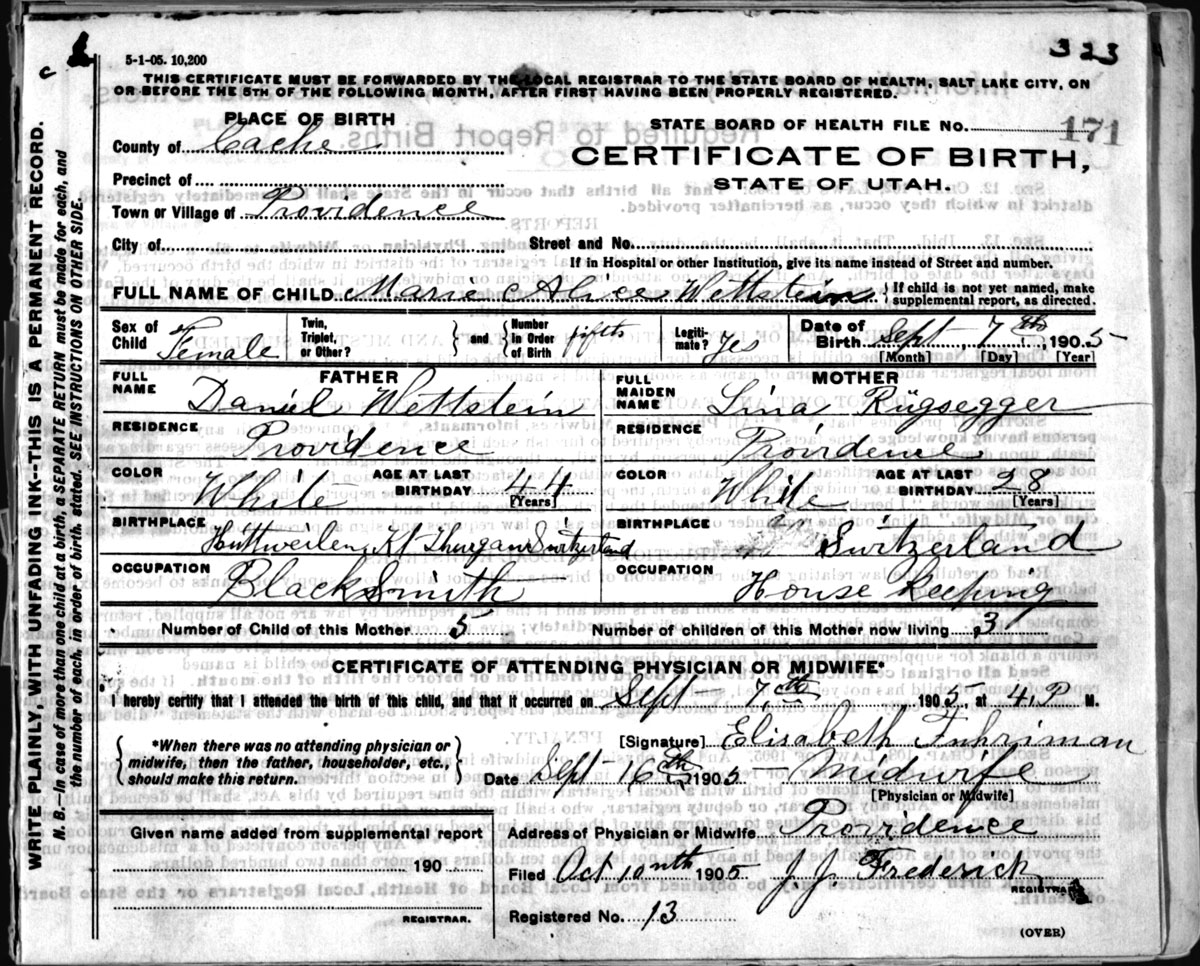 323
5-1-05. 10,200
THIS CERTIFICATE MUST BE FORWARDED BY THE LOCAL REGISTRAR TO THE STATE BOARD OF HEALTH, SALT LAKE CITY, ON
OR BEFORE THE 5TH OF THE FOLLOWING MONTH, AFTER FIRST HAVING BEEN PROPERLY REGISTERED.
PLACE OF BIRTH
STATE BOARD OF HEALTH FILE No. 171
County of Cache
CERTIFICATE OF BIRTH,
STATE OF UTAH.
Precinct of
Town or Village of Providence
City of Street and No.
If in Hospital or other Institution, give its name instead of Street and number.
FULL NAME OF CHILD Marie Alice Wettstein { If child is not yet named, make supplemental report, as directed.
Sex of Child Female Twin, Triplet, or Other? } and { Number in Order of Birth fifth Legiti-mate? Yes Date of Birth Sept 7th 1905
[Month] [Day] [Year]
FATHER MOTHER
FULL NAME Daniel Wettstein FULL MAIDEN NAME Lina Rügsegger
RESIDENCE Providence RESIDENCE Providence
COLOR White AGE AT LAST BIRTHDAY 44 [Years] COLOR White AGE AT LAST BIRTHDAY 28 [Years]
BIRTHPLACE Hüttweilen Kt Thurgau Switzerland BIRTHPLACE Switzerland
OCCUPATION Blacksmith OCCUPATION House Keeping
Number of Child of this Mother 5 Number of children of this Mother now living 3
CERTIFICATE OF ATTENDING PHYSICIAN OR MIDWIFE*
I hereby certify that I attended the birth of this child, and that it occurred on Sept 7th 1905, at 4 P M.
{ *When there was no attending physician or midwife, then the father, householder, etc., should make this return. }
[Signature] Elisabeth Fuhriman
Date Sept 16th 1905 Midwife
[Physician or Midwife]
Given name added from supplemental report
190
REGISTRAR.
Address of Physician or Midwife Providence
Filed Oct 10nth 1905 J. J. Frederick
REGISTRAR
Registered No. 13
(OVER)
WRITE PLAINLY, WITH UNFADING INK--THIS IS A PERMANENT RECORD.
N. B.--In case of more than one child at a birth, a SEPARATE RETURN must be made for each, and
the number of each, in order of birth, stated. SEE INSTRUCTIONS ON OTHER SIDE.